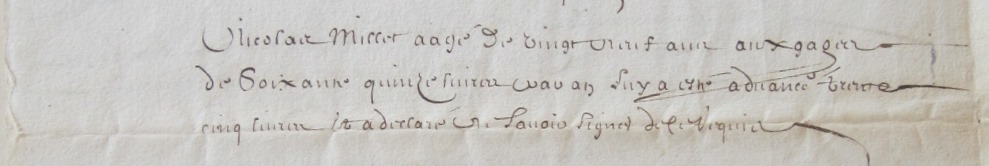 Nicolas Millet aagé De vingt neuf ans aux gages
de Soixante quinze livres par an luy a esté advancé trente
cinq livres Et a declaré ne Scavoir Signer de ce requis